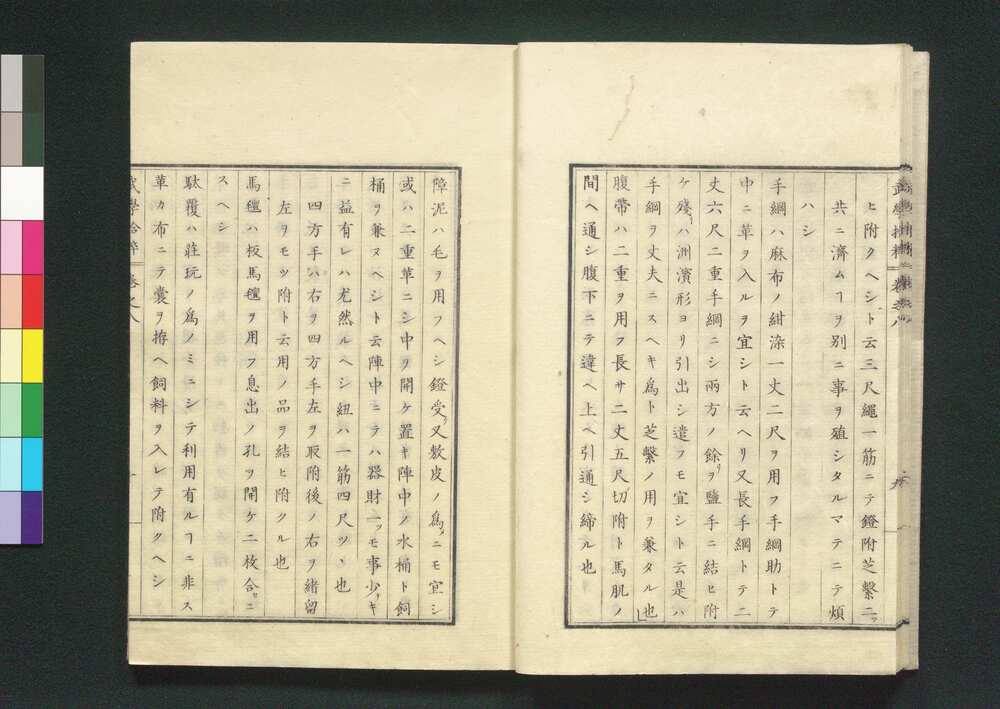 ヒ附クヘシト云三尺繩一筋ニテ鐙附芝繋二ツ
共ニ濟ムヿヲ別ニ事ヲ殖シタルマテニテ煩
ハシ
手綱ハ麻布ノ紺染一丈二尺ヲ用フ手綱助トテ
中ニ革ヲ入ルヲ宜シト云ヘリ又長手綱トテ二
丈六尺二重手綱ニシ兩方ノ餘リヲ鹽手ニ結ヒ附
ケ殘リハ洲濱形ヨリ引出シ遣フモ宜シト云是ハ
手綱ヲ丈夫ニスヘキ爲ト芝繋ノ用ヲ兼タル也
腹帶ハ二重ヲ用フ長サ二丈五尺切附ト馬肌ノ
間ヘ通シ腹下ニテ違ヘ上ヘ引通シ締ル也
障泥ハ毛ヲ用フヘシ鐙受又敷皮ノ爲ニモ宜シ
或ハ二重革ニシ中ヲ開ケ置キ陣中ノ水桶ト飼
桶ヲ兼ヌヘシト云陣中ニテハ器財一ツモ事少キ
ニ益有レハ尤然ルヘシ紐ハ一筋四尺ツヽ也
四方手ハ右ヲ四方手左ヲ取附後ノ右ヲ緒留
左ヲモツ附ト云用ノ品ヲ結ヒ附クル也
馬氊ハ板馬氊ヲ用フ息出ノ孔ヲ開ケ二枚合セニ
スヘシ
駄覆ハ莊玩ノ爲ノミニシテ利用有ルヿニ非ス
革カ布ニテ嚢ヲ拵ヘ飼料ヲ入レテ附クヘシ
武學拾粹 卷之八